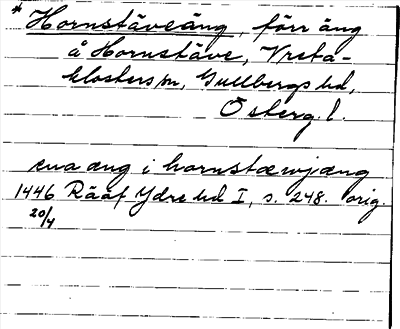 * Hornstäveäng, förr äng
å Hornstäve, Vreta-
klosters sn, Gullbergs hd,
Österg. l.
ena æng i hornstæwjæng
1446 Rääf Ydre hd I, s. 248. orig.
20/4